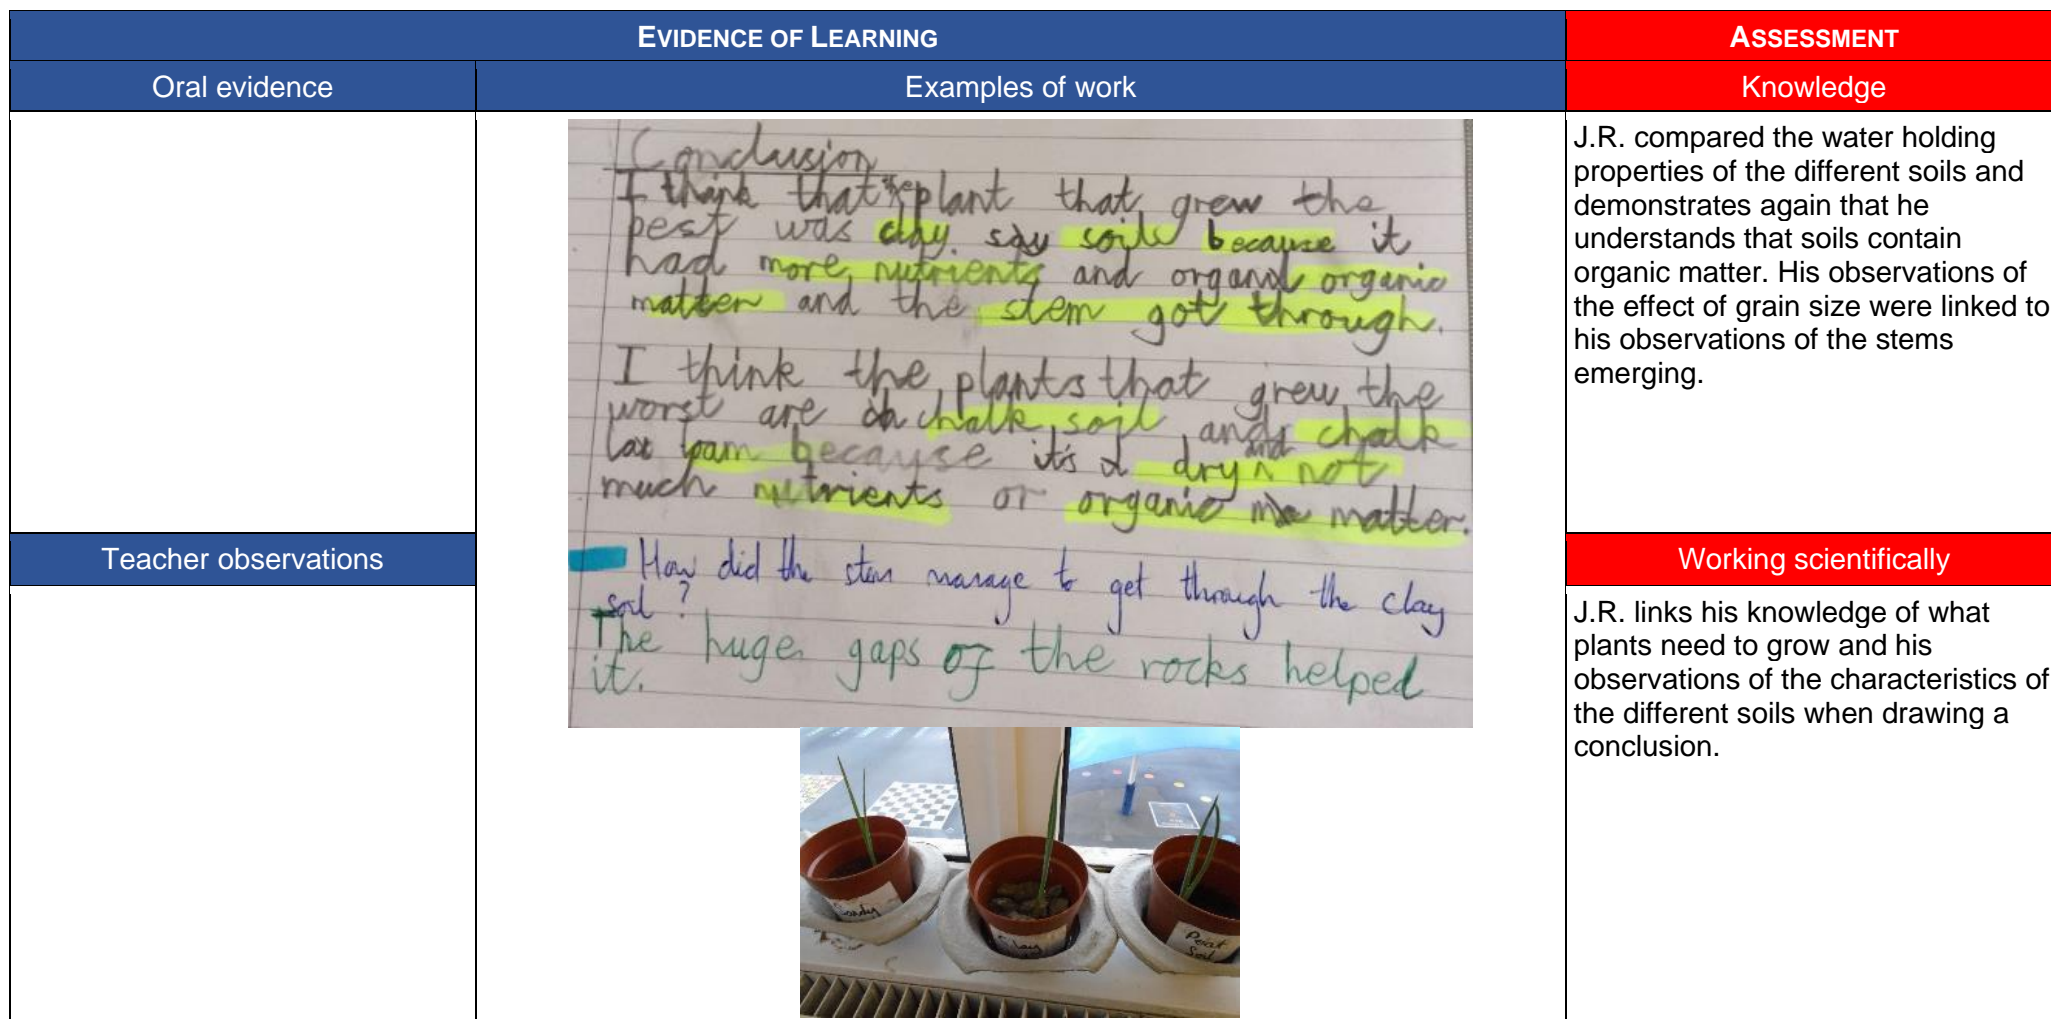 EVIDENCE OF LEARNING
ASSESSMENT
Oral evidence
Examples of work
Knowledge
Conclusion
I think that the plant that grew the
best was clay say soil because it
had more nutrients and organd organic
matter and the stem got through.
I think the plants that grew the
worst are ch chalk soil and chalk
lox loam because it's a dry and not
much nutrients or organic ma matter.
How did the stem manage to get through the clay
soil?
The huge gaps of the rocks helped
it.
Sandy
Clay
Peat
Soil
J.R. compared the water holding
properties of the different soils and
demonstrates again that he
understands that soils contain
organic matter. His observations of
the effect of grain size were linked to
his observations of the stems
emerging.
Teacher observations
Working scientifically
J.R. links his knowledge of what
plants need to grow and his
observations of the characteristics of
the different soils when drawing a
conclusion.